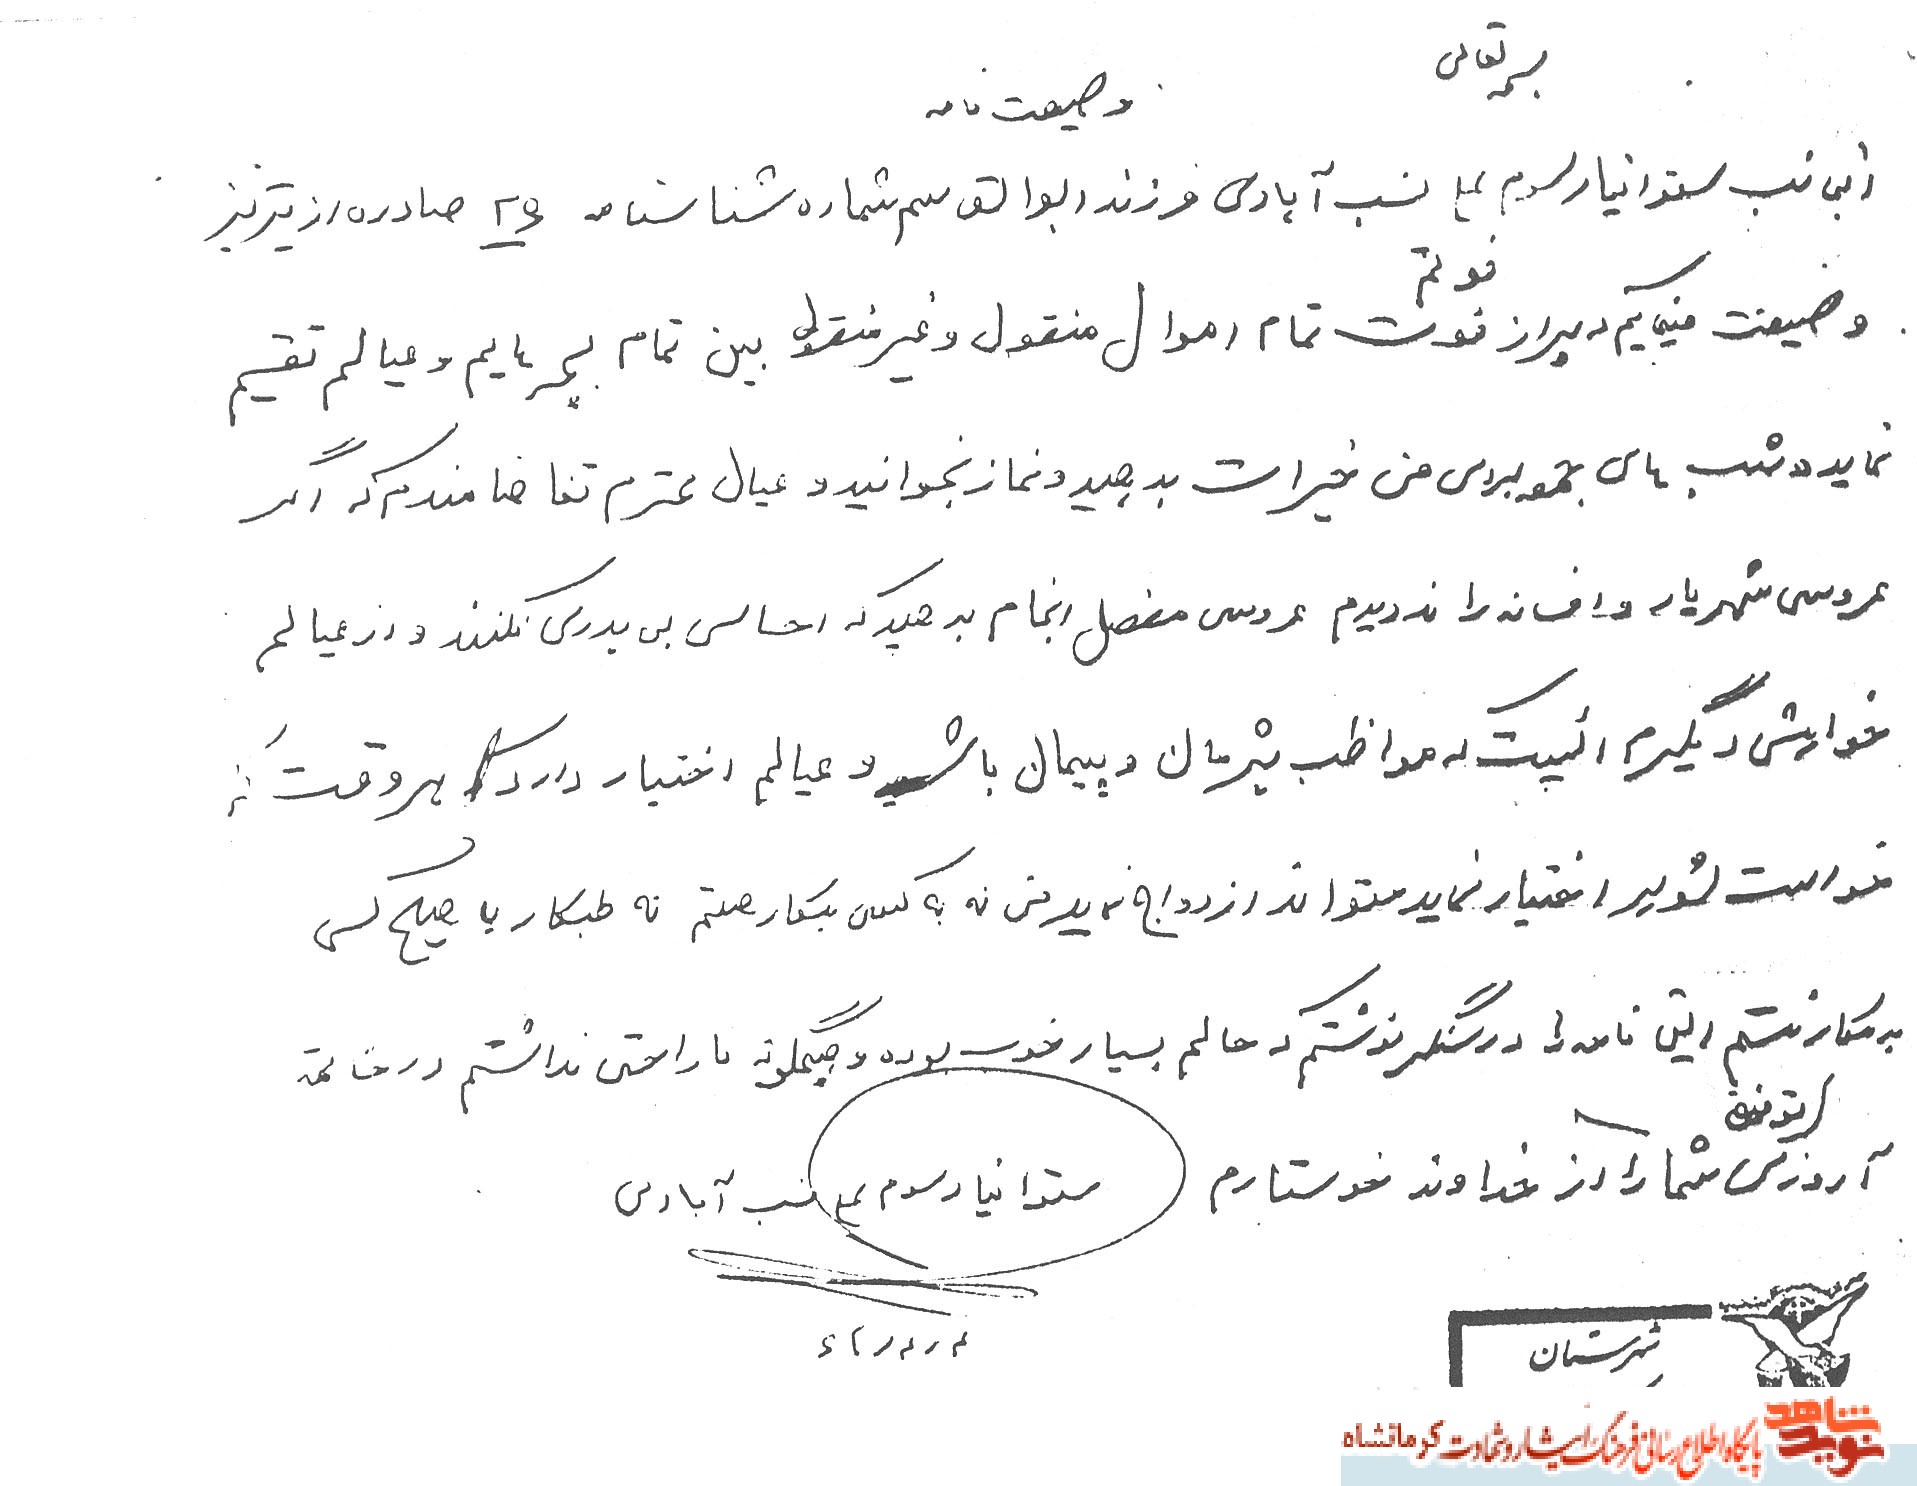 بسمه تعالی
وصیعت نامه
اینجانب ستوانیار سوم علی نسب آبادی فرزند ابوالقاسم شماره شناسنامه ۲۹ صادره از تبریز
فوتم
وصیعت مینمایم که پس از فوت تمام اموال منقول و غیر منقول بین تمام بچه هایم و عیالم تقسیم
نماید و شب های جمعه برای من خیرات بدهید و نماز بخوانید و عیال محترم تقاضامندم که اگر
عروسی شهریار و افسانه را ندیدم عروسی مفصل انجام بدهید که احساس بی پدری نکنند و از عیالم
خواهش دیگرم اینست که مواظب نریمان و پیمان باشید و عیالم اختیار دارد هر وقت که
خواست شوهر اختیار نماید میتواند ازدواج نماید من نه به کسی بدهکار هستم نه طلبکار با هیچ کسی
بدهکار نیستم این نامه را در سنگر نوشتم که حالم بسیار خوب بوده و هیچگونه ناراحتی نداشتم در خاتمه
توفیق
آرزوی شما را از خداوند خوستارم ستوانیار سوم علی نسب آبادی
شهرستان
نوید شاهد
پایگاه اطلاع رسانی فرهنگ ایثار و شهادت کرمانشاه